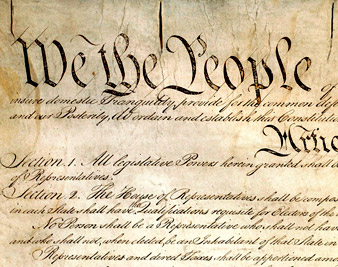 We the People of
insure domestic Tranquility, provide for the common defe
and our Posterity, do ordain and establish this Constitutio
Artic
Section. 1. All legislative Powers herein granted shall be
of Representatives.
Section. 2. The House of Representatives shall be compos
in each State shall have the Qualifications requisite for Electors of the
No Person shall be a Representative who shall not hav
and who shall not, when elected, be an Inhabitant of that State in
Representatives and direct Taxes shall be apportioned amon